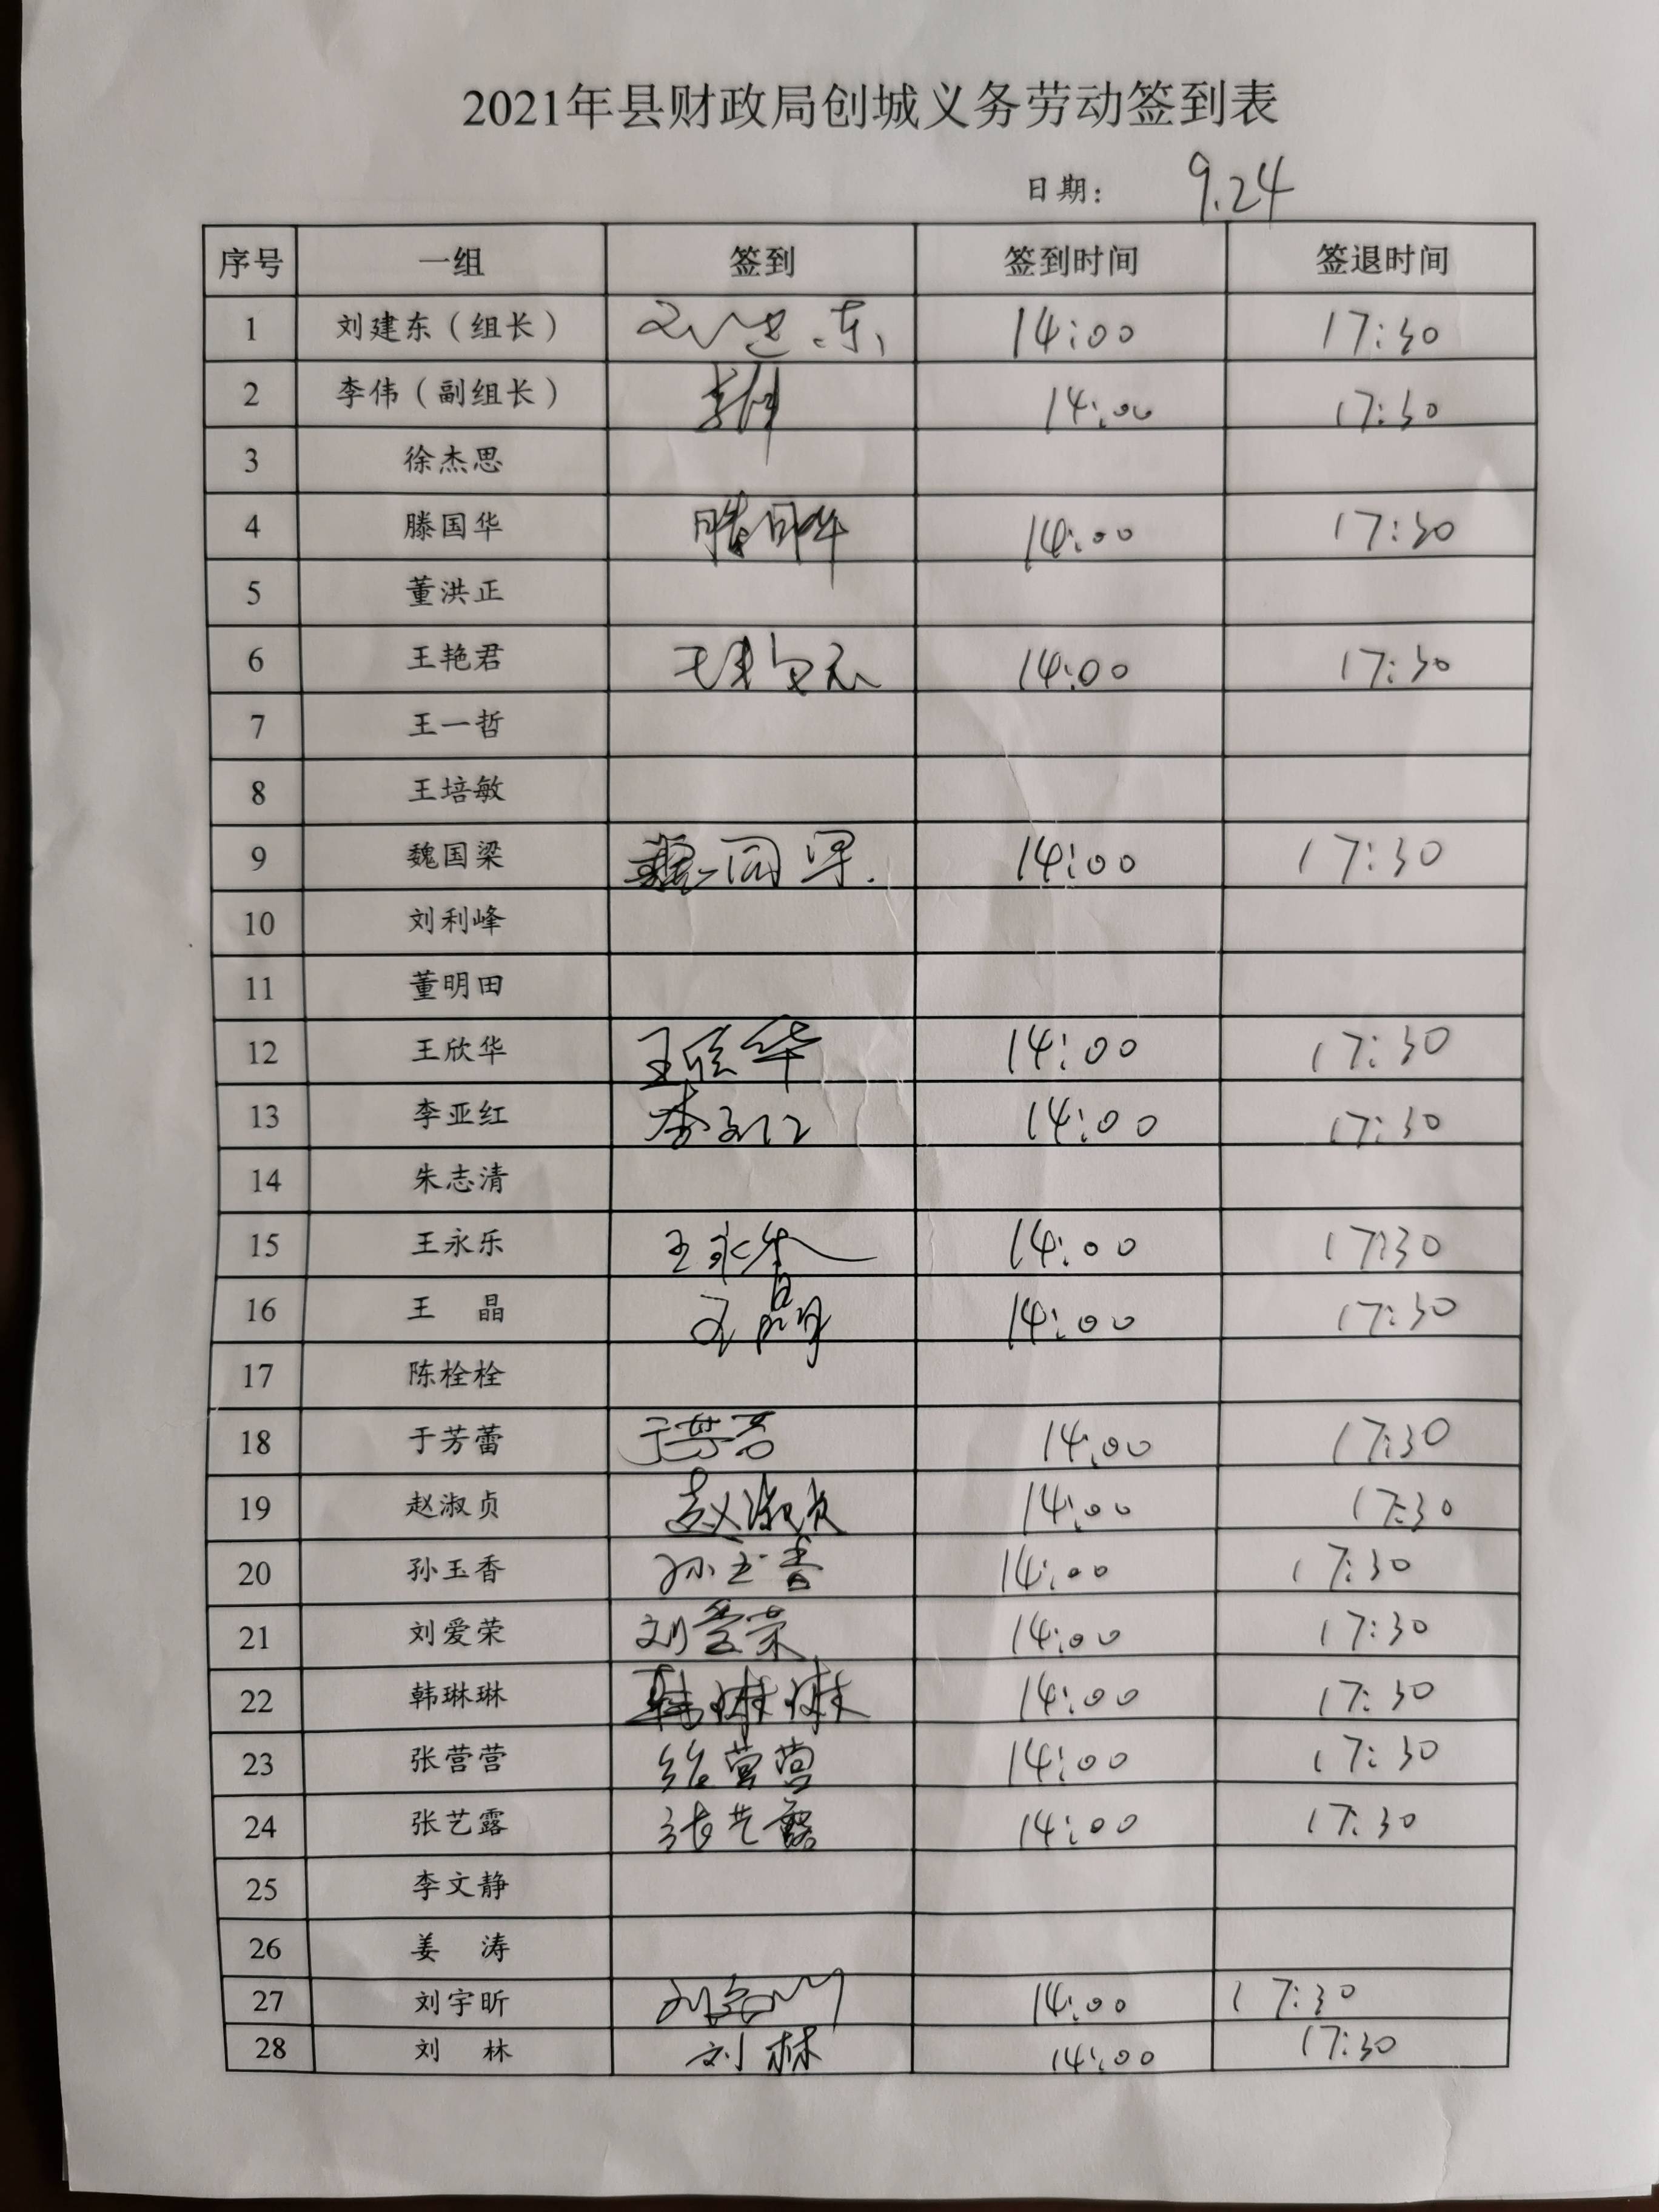 2021年县财政局创城义务劳动签到表
日期： 9.24
序号 一组 签到 签到时间 签退时间
1 刘建东（组长） 刘建东 14:00 17:30
2 李伟（副组长） 李伟 14:00 17:30
3 徐杰思
4 滕国华 滕国华 14:00 17:30
5 董洪正
6 王艳君 14:00 17:30
7 王一哲
8 王培敏
9 魏国梁 魏国梁 14:00 17:30
10 刘利峰
11 董明田
12 王欣华 王欣华 14:00 17:30
13 李亚红 李亚红 14:00 17:30
14 朱志清
15 王永乐 王永乐 14:00 17:30
16 王 晶 王晶 14:00 17:30
17 陈栓栓
18 于芳蕾 于芳蕾 14:00 17:30
19 赵淑贞 赵淑贞 14:00 17:30
20 孙玉香 孙玉香 14:00 17:30
21 刘爱荣 刘爱荣 14:00 17:30
22 韩琳琳 韩琳琳 14:00 17:30
23 张营营 张营营 14:00 17:30
24 张艺露 张艺露 14:00 17:30
25 李文静
26 姜 涛
27 刘宇昕 刘宇昕 14:00 17:30
28 刘 林 刘林 14:00 17:30